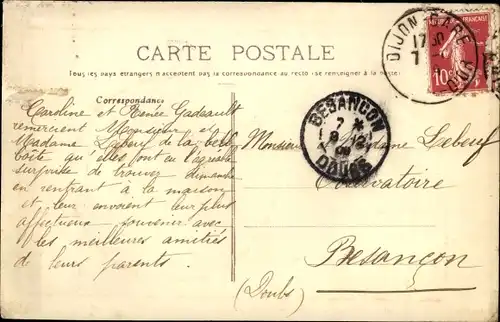 CARTE POSTALE
Tous les pays étrangers n'acceptent pas la correspondance au recto (se renseigner à la poste)
Correspondance
Caroline et Renée Gadeault
remercient Monsieur et
Madame Lebeuf de la belle
boîte qu'elles ont eu l'agréable
surprise de trouver dimanche
en rentrant à la maison
et leur envoient leur plus
affectueux souvenir avec
les meilleures amitiés
de leurs parents.
DIJON GARE
17 30
7
10
BESANÇON
7 *
9 12
08
DOUBS
Monsieur Madame Lebeuf
Observatoire
Besançon
(Doubs)